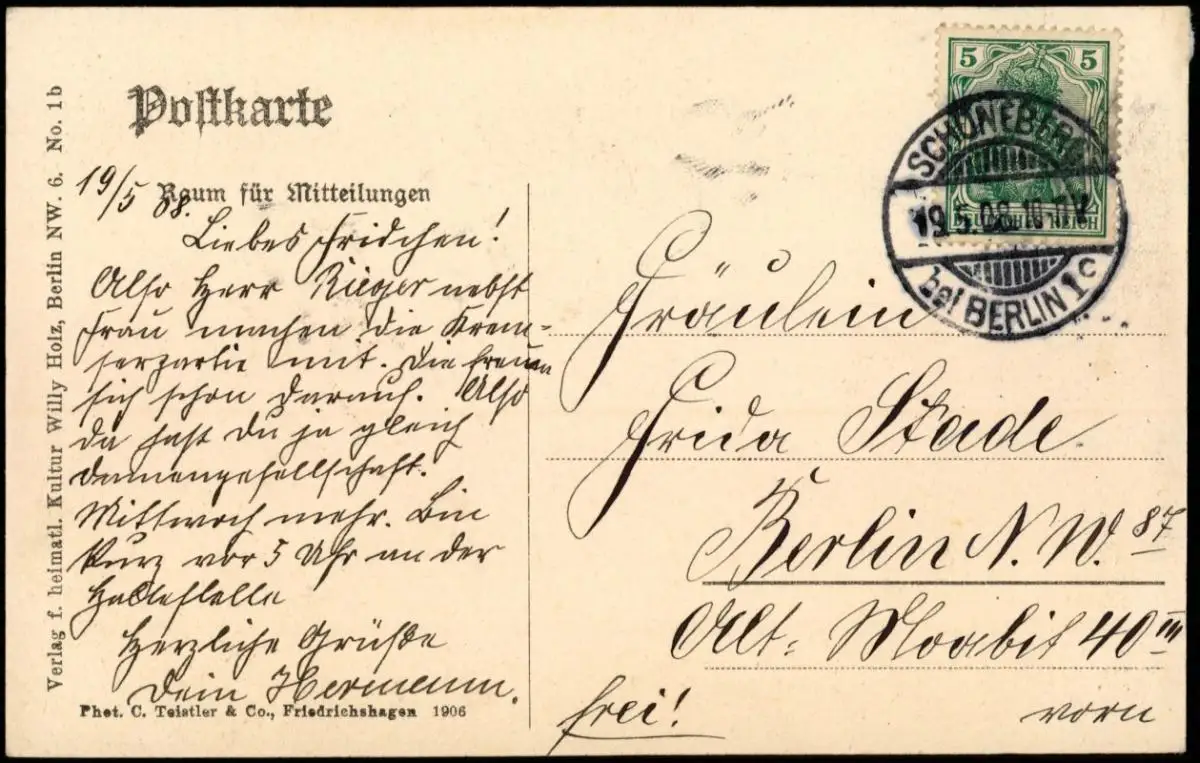 Postkarte
Raum für Mitteilungen
19/5 08.
Liebes Fridchen!
Also Herr Rieger nebst
Frau machen die Krem-
serpartie mit. Die freuen
sich schon darauf. Also
da hast Du ja gleich
Damengesellschaft.
Mittwoch mehr. Bin
kurz vor 5 Uhr an der
Haltestelle
Herzliche Grüße
Dein Hermann.
Phot. C. Teistler & Co., Friedrichshagen 1906
Verlag f. heimatl. Kultur Willy Holz, Berlin NW. 6. No. 1b
5 5
DEUTSCHES REICH
SCHÖNEBERG
19.5.08.10-11V.
bei BERLIN 1c
Fräulein
Frida Stade
Berlin N.W. 87
Alt-Moabit 40 III
frei!
vorn